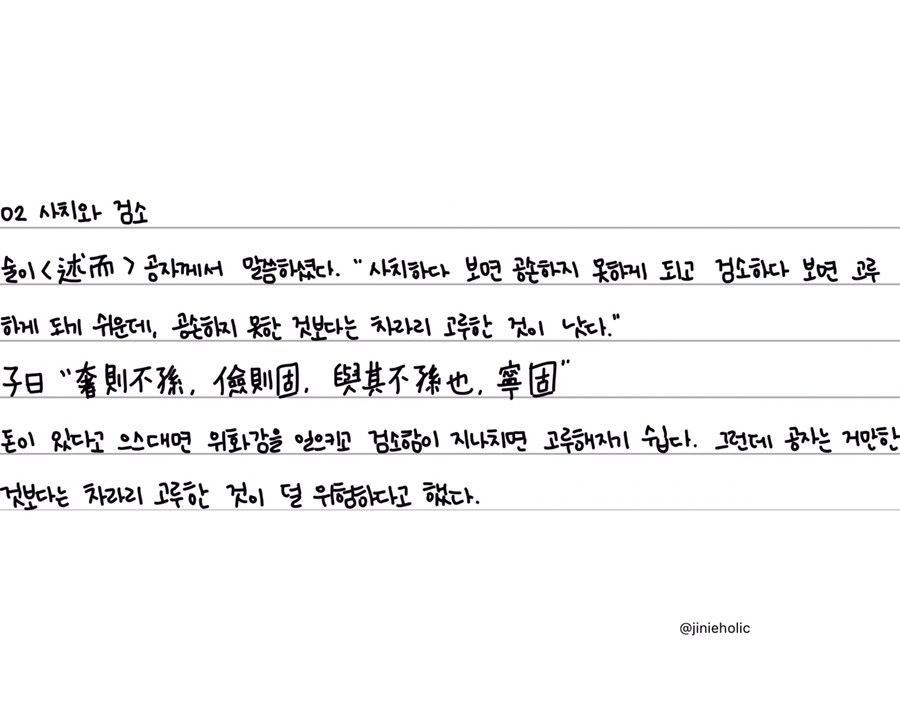 02 사치와 검소
술이<述而> 공자께서 말씀하셨다. "사치하다 보면 공손하지 못하게 되고 검소하다 보면 고루
하게 되기 쉬운데, 공손하지 못한 것보다는 차라리 고루한 것이 낫다."
子曰 "奢則不孫, 儉則固, 與其不孫也, 寧固"
돈이 있다고 으스대면 위화감을 일으키고 검소함이 지나치면 고루해지기 쉽다. 그런데 공자는 거만한
것보다는 차라리 고루한 것이 덜 위험하다고 했다.
@jinieholic